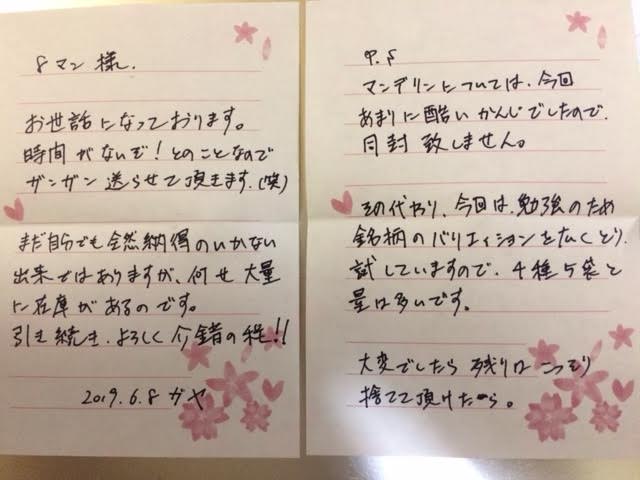 8マン 様.
お世話になっております。
時間がないぞ！とのことなので
ガンガン送らせて頂きます.(笑)
まだ自分でも全然納得のいかない
出来ではありますが、何せ大量
に在庫があるのです。
引き続き、よろしく介錯の程!!
2019.6.8 ガヤ
P.S
マンデリンについては、今回
あまりに酷いかんじでしたので、
同封致しません。
その代わり、今回は、勉強のため
銘柄のバリエイションを広くとり、
試していますので、4種5袋と
量は多いです。
大変でしたら残りはこっそり
捨てて頂けたら。